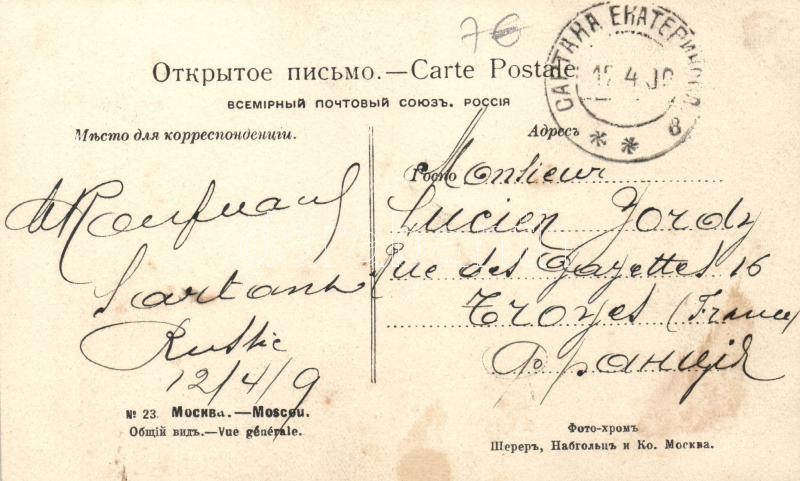 7€
САРТАНА ЕКАТЕРИНОСЛ.
4.09
8
Открытое письмо.—Carte Postale
ВСЕМІРНЫЙ ПОЧТОВЫЙ СОЮЗЪ. РОССІЯ
Мѣсто для корреспонденціи.
Адресъ
Monsieur
Lucien Jordy
Rue des Gayettes 16
Troyes (France)
Франція
Sartana
Russie
12/4/9
№ 23. Москва.—Moscou.
Общій видъ.—Vue générale.
Фото-хромъ
Шереръ, Набгольцъ и Ко. Москва.